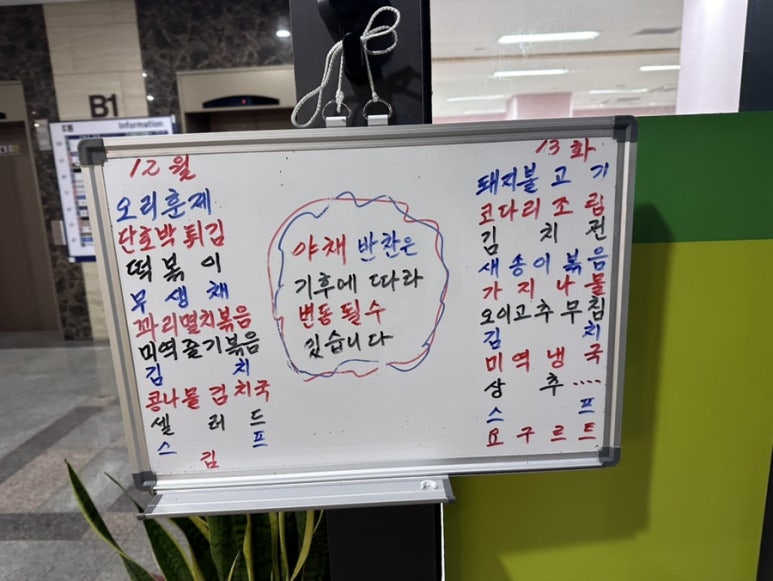 B1
Information
12월
오리훈제
단호박튀김
떡볶이
무생채
꽈리멸치볶음
미역줄기볶음
김치
콩나물김치국
셀러드
스프
김
야채 반찬은
기후에 따라
변동될수
있습니다
13화
돼지불고기
코다리조림
김치전
새송이볶음
가지나물
오이고추무침
김치
미역냉국
상추....
스프
요구르트